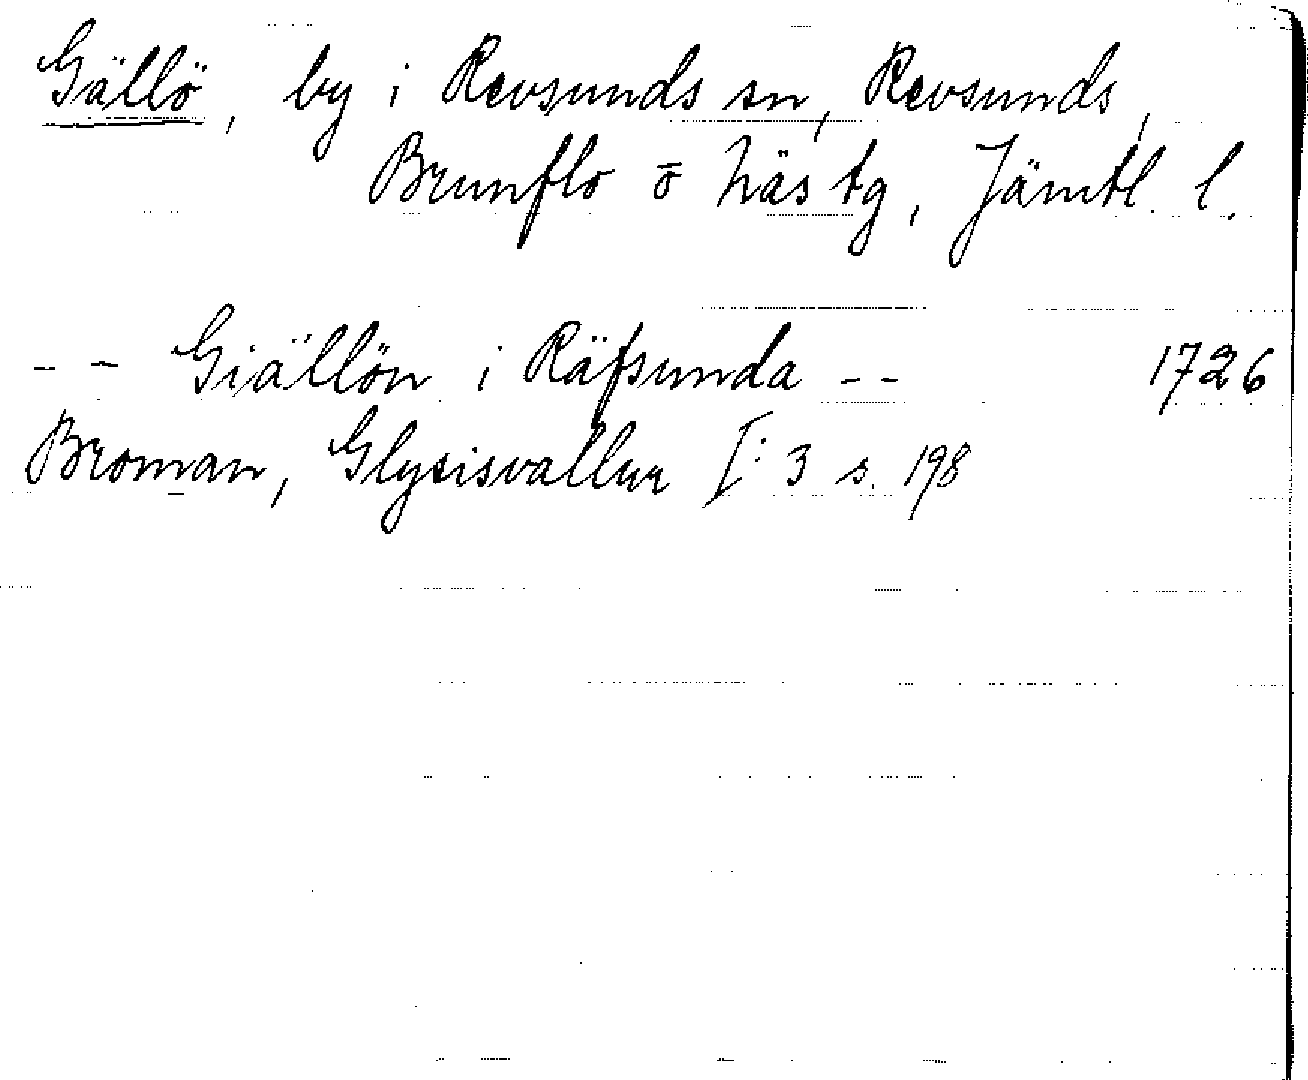 Gällö, by i Revsunds sn, Revsunds,
Brunflo o Näs tg, Jämtl. l.
-- Giällön i Räfsunda -- 1726
Broman, Glysisvallur I: 3 s. 198